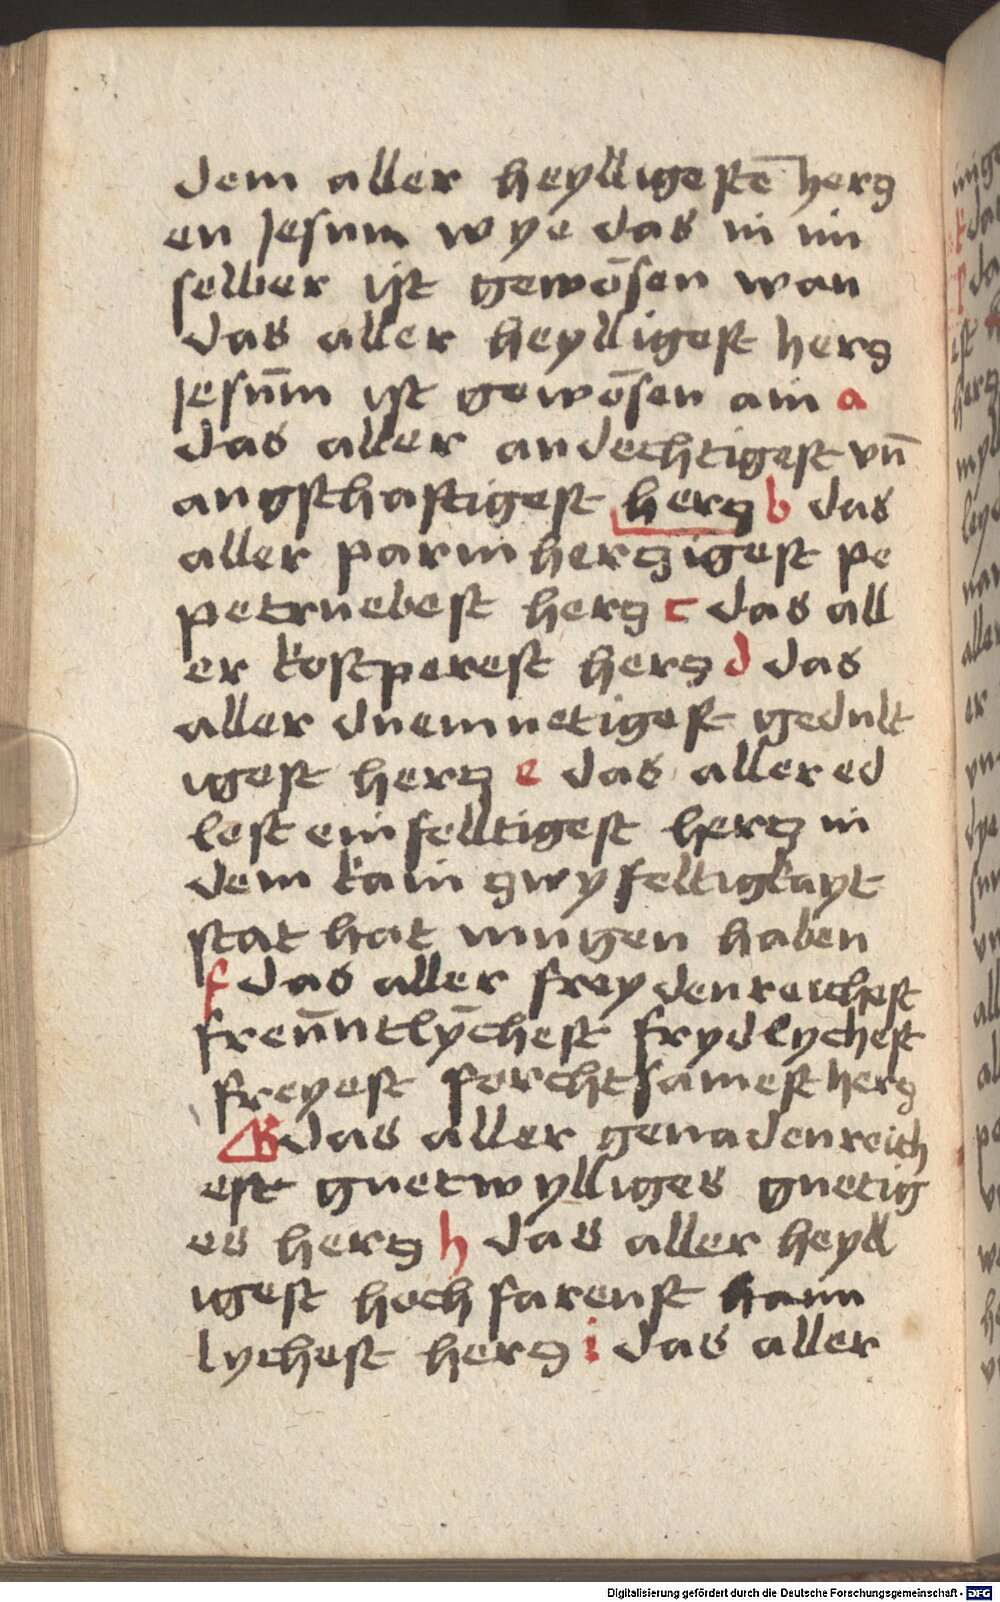 dem aller heylligestē hercz
en Jesum wye das in im
selber ist gewōsen wan
das aller heylligest hercz
Jesūm ist gewōsen ain a
das aller andechtigest vn̄
angsthaftigest hercz b das
aller parmherczigest pe
petruebest hercz c das all
er kostperest hercz d das
aller duemuetigest gedult
igest hercz e das aller ed
lest einfelltigest hercz in
dem kain zwyfeltigkayt
stat hat mugen haben
f das aller freydenreichest
freūntlychest frydlychest
freyest forchtsamest hercz
G das aller genadenreich
est guetwylliges guetig
es hercz h das aller heyll
igest hoch farenst haim
lychest hercz i das aller
Digitalisierung gefördert durch die Deutsche Forschungsgemeinschaft - DFG